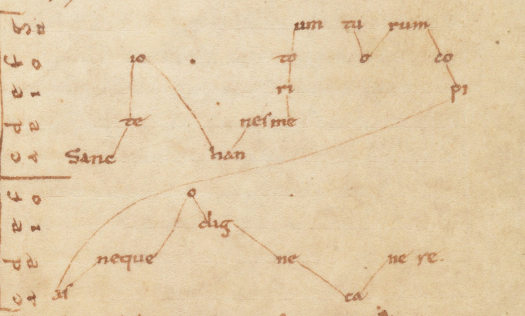 Sanc te io han nesme ri to um tu o rum co pi
as neque o dig ne ca ne re.